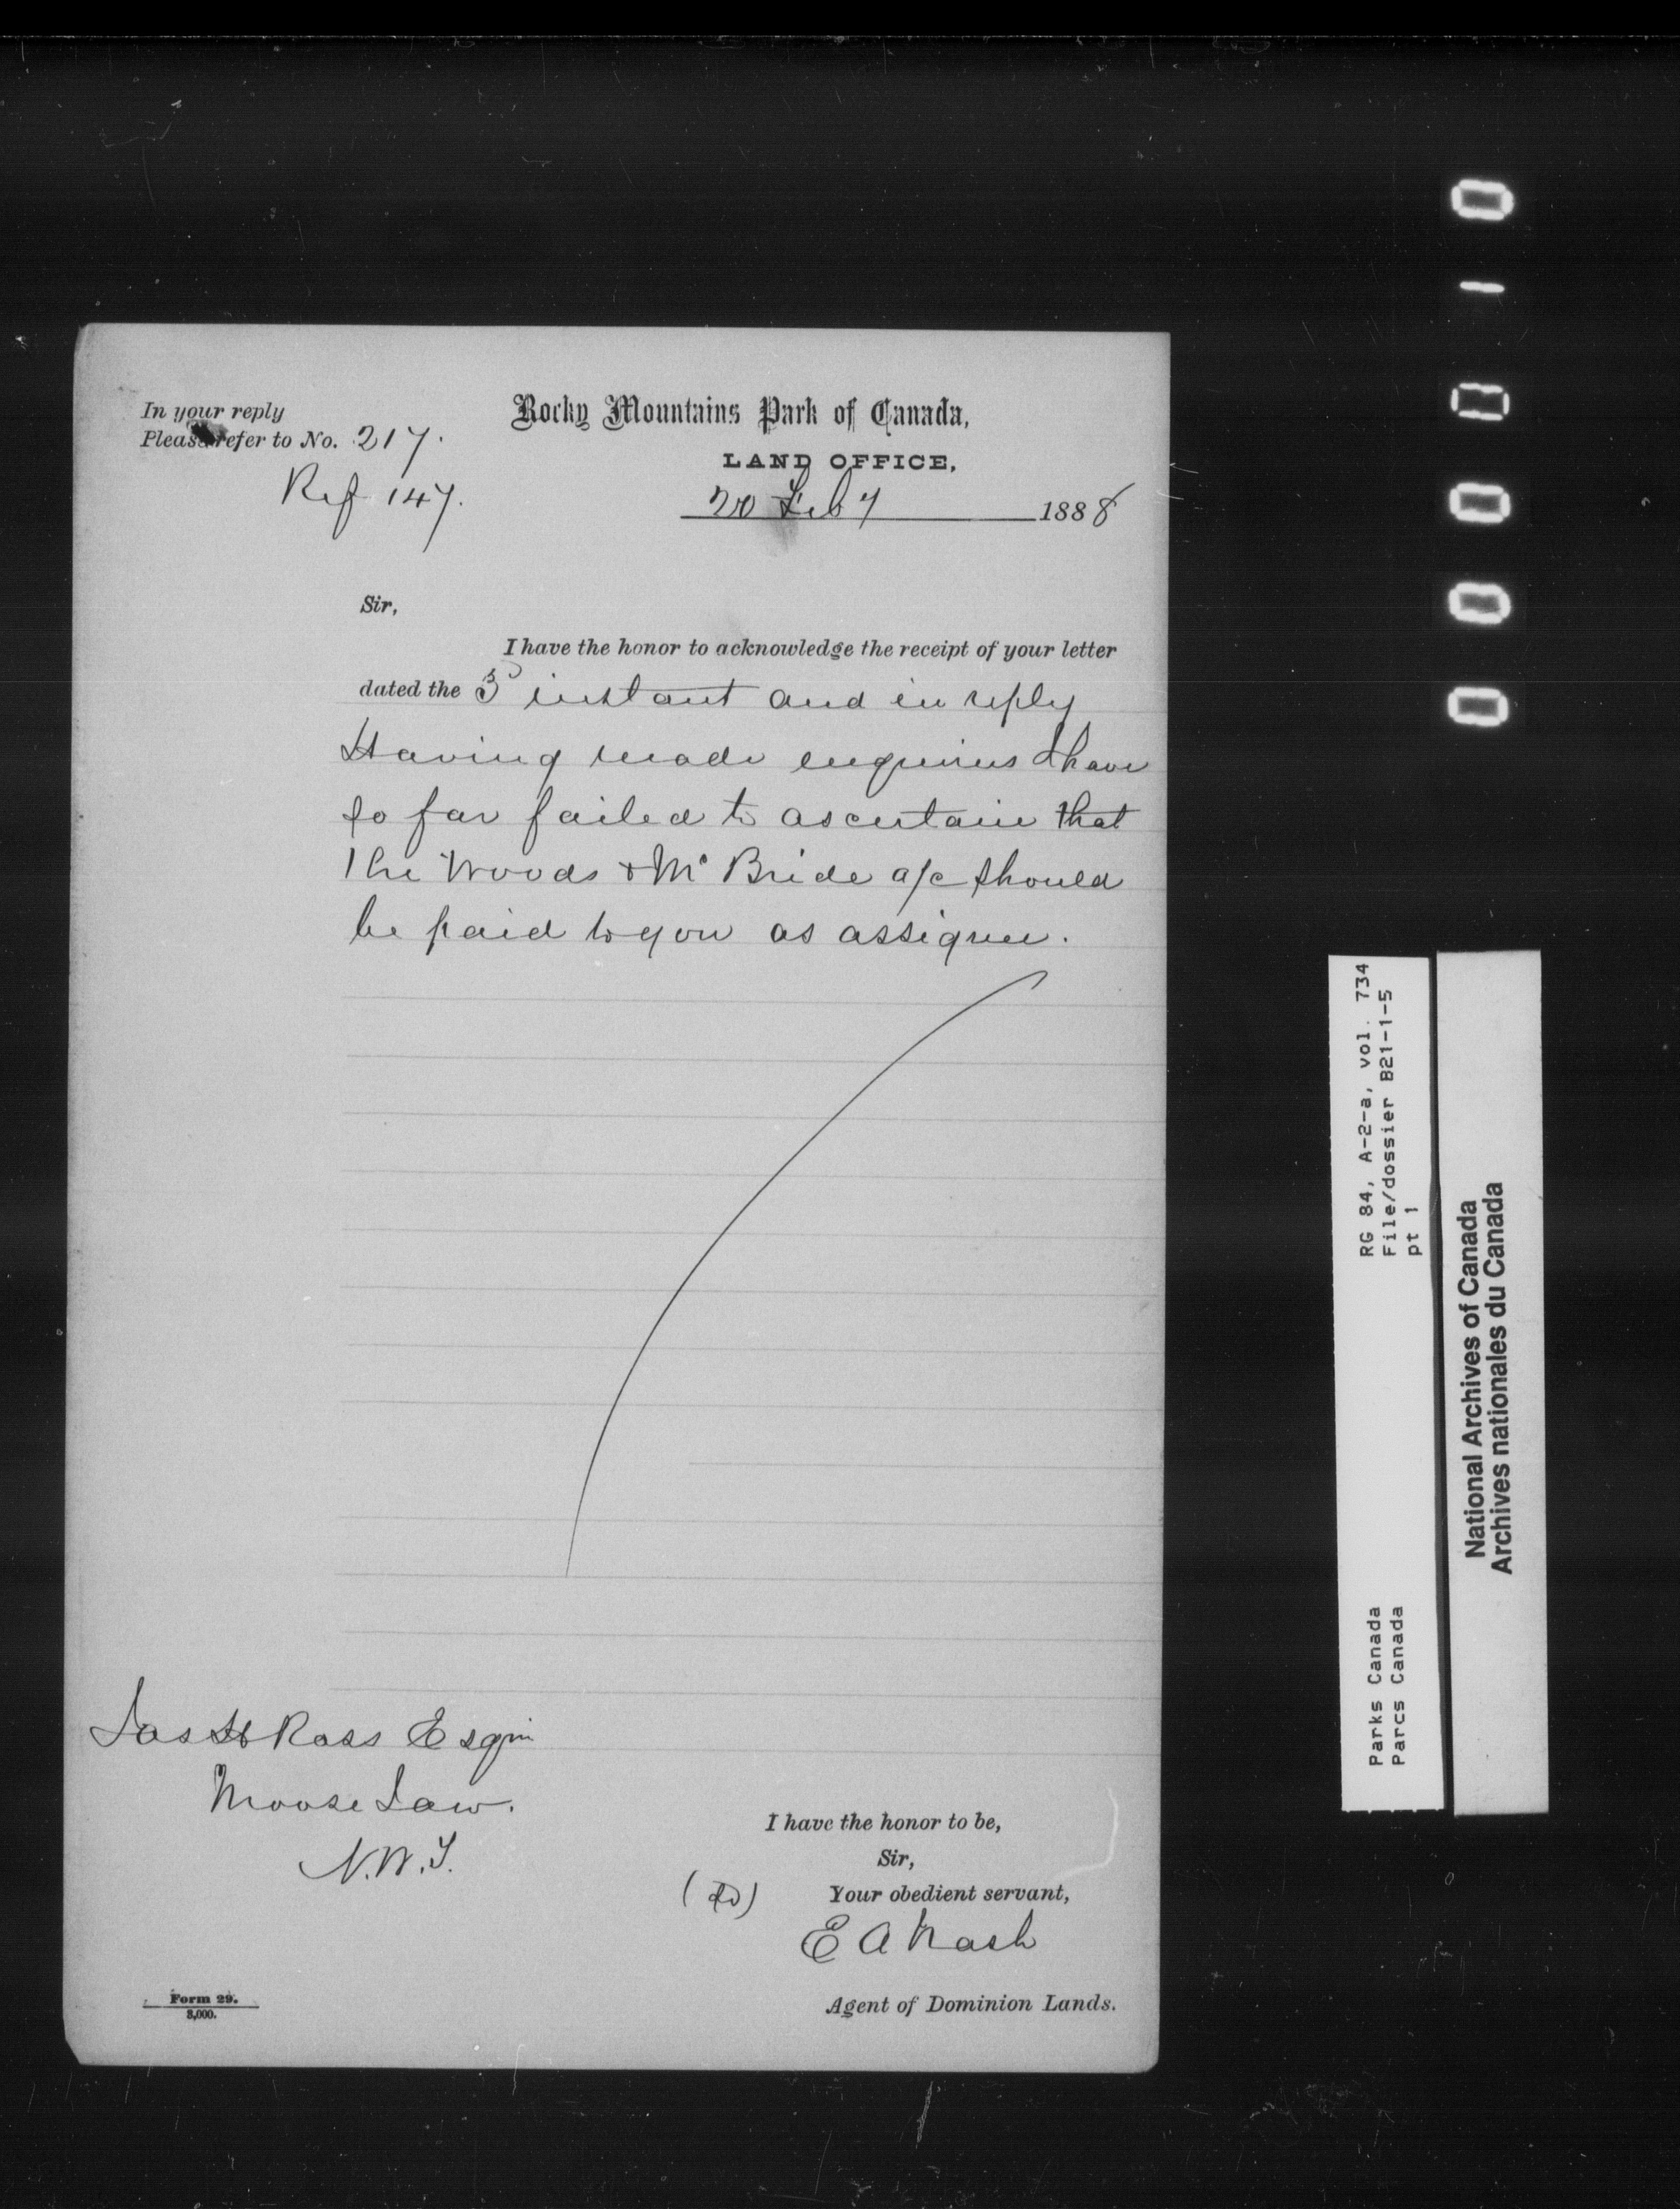 In your reply
Please refer to No. 217.
Ref 147.
Rocky Mountains Park of Canada,
LAND OFFICE,
20 Feby 1888
Sir,
I have the honor to acknowledge the receipt of your letter
dated the 5 instant and in reply
Having made enquiries I have
so far failed to ascertain that
the Woods & Mc Bride a/c should
be paid to you as assignee.
Jas H Ross Esqre
Moose Jaw.
N.W.T.
I have the honor to be,
Sir,
Your obedient servant,
E A Nash
Agent of Dominion Lands.
Form 29.
3,000.
0 1 0 0 0 0
RG 84, A-2-a, vol. 734
File/dossier B21-1-5
pt 1
Parks Canada
Parcs Canada
National Archives of Canada
Archives nationales du Canada